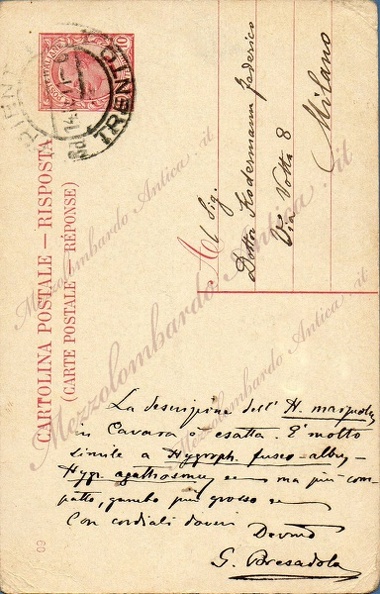 CARTOLINA POSTALE — RISPOSTA
(CARTE POSTALE — RÉPONSE)
TRENTO
10
Al Sig.
Dottor Kodermann Federico
Via Volta 8
Milano
La descrizione dell' H.
in Cavara è esatta. È molto
simile a Hygroph. fusco-albus,
Hygr. agathosmus ec ma più com-
patto, gambo più grosso ec
Con cordiali doveri
Devmo
G. Bresadola
09
Mezzolombardo Antica.it
Mezzolombardo Antica.it
Mezzolombardo Antica.it